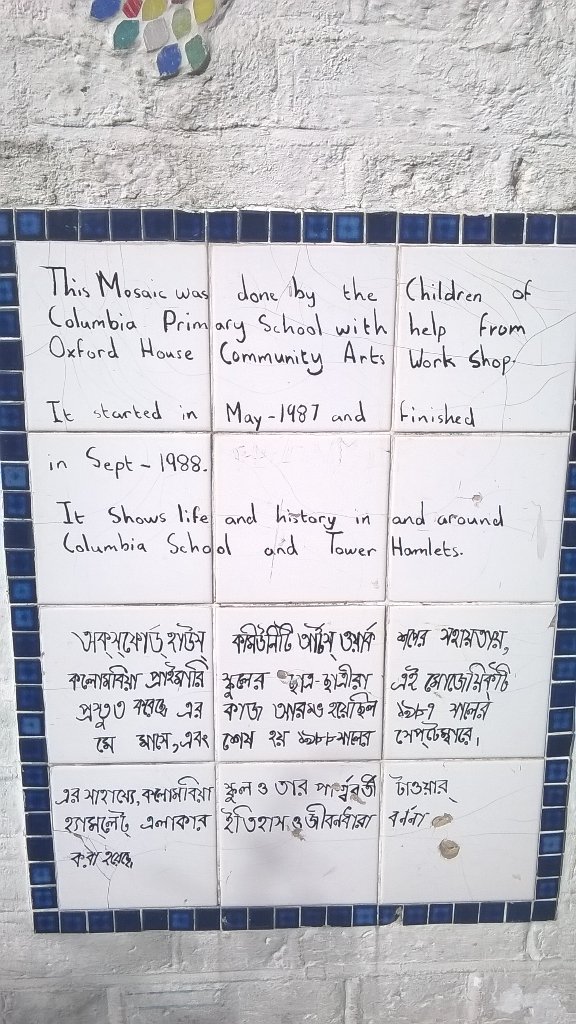 This Mosaic was done by the Children of
Columbia Primary School with help from
Oxford House Community Arts Work Shop.
It started in May-1987 and finished
in Sept-1988.
It Shows life and history in and around
Columbia School and Tower Hamlets.
অক্স্ফোর্ড হাউস্ কমিউনিটি আর্টস্ ওয়ার্ক শপের সহায়তায়,
কলোমবিয়া প্রাইমারি স্কুলের ছাত্র-ছাত্রীরা এই মোজেয়িকটি
প্রস্তুত করেছে এর কাজ আরম্ভ হয়েছিল ১৯৮৭ সালের
মে মাসে, এবং শেষ হয় ১৯৮৮ সালের সেপ্টেম্বারে।
এর সাহায্যে, কলোমবিয়া স্কুল ও তার পার্শ্ববর্তী টাওয়ার্
হ্যাম্লেট্ এলাকার ইতিহাস ও জীবনধারা বর্ননা
করা হয়েছে